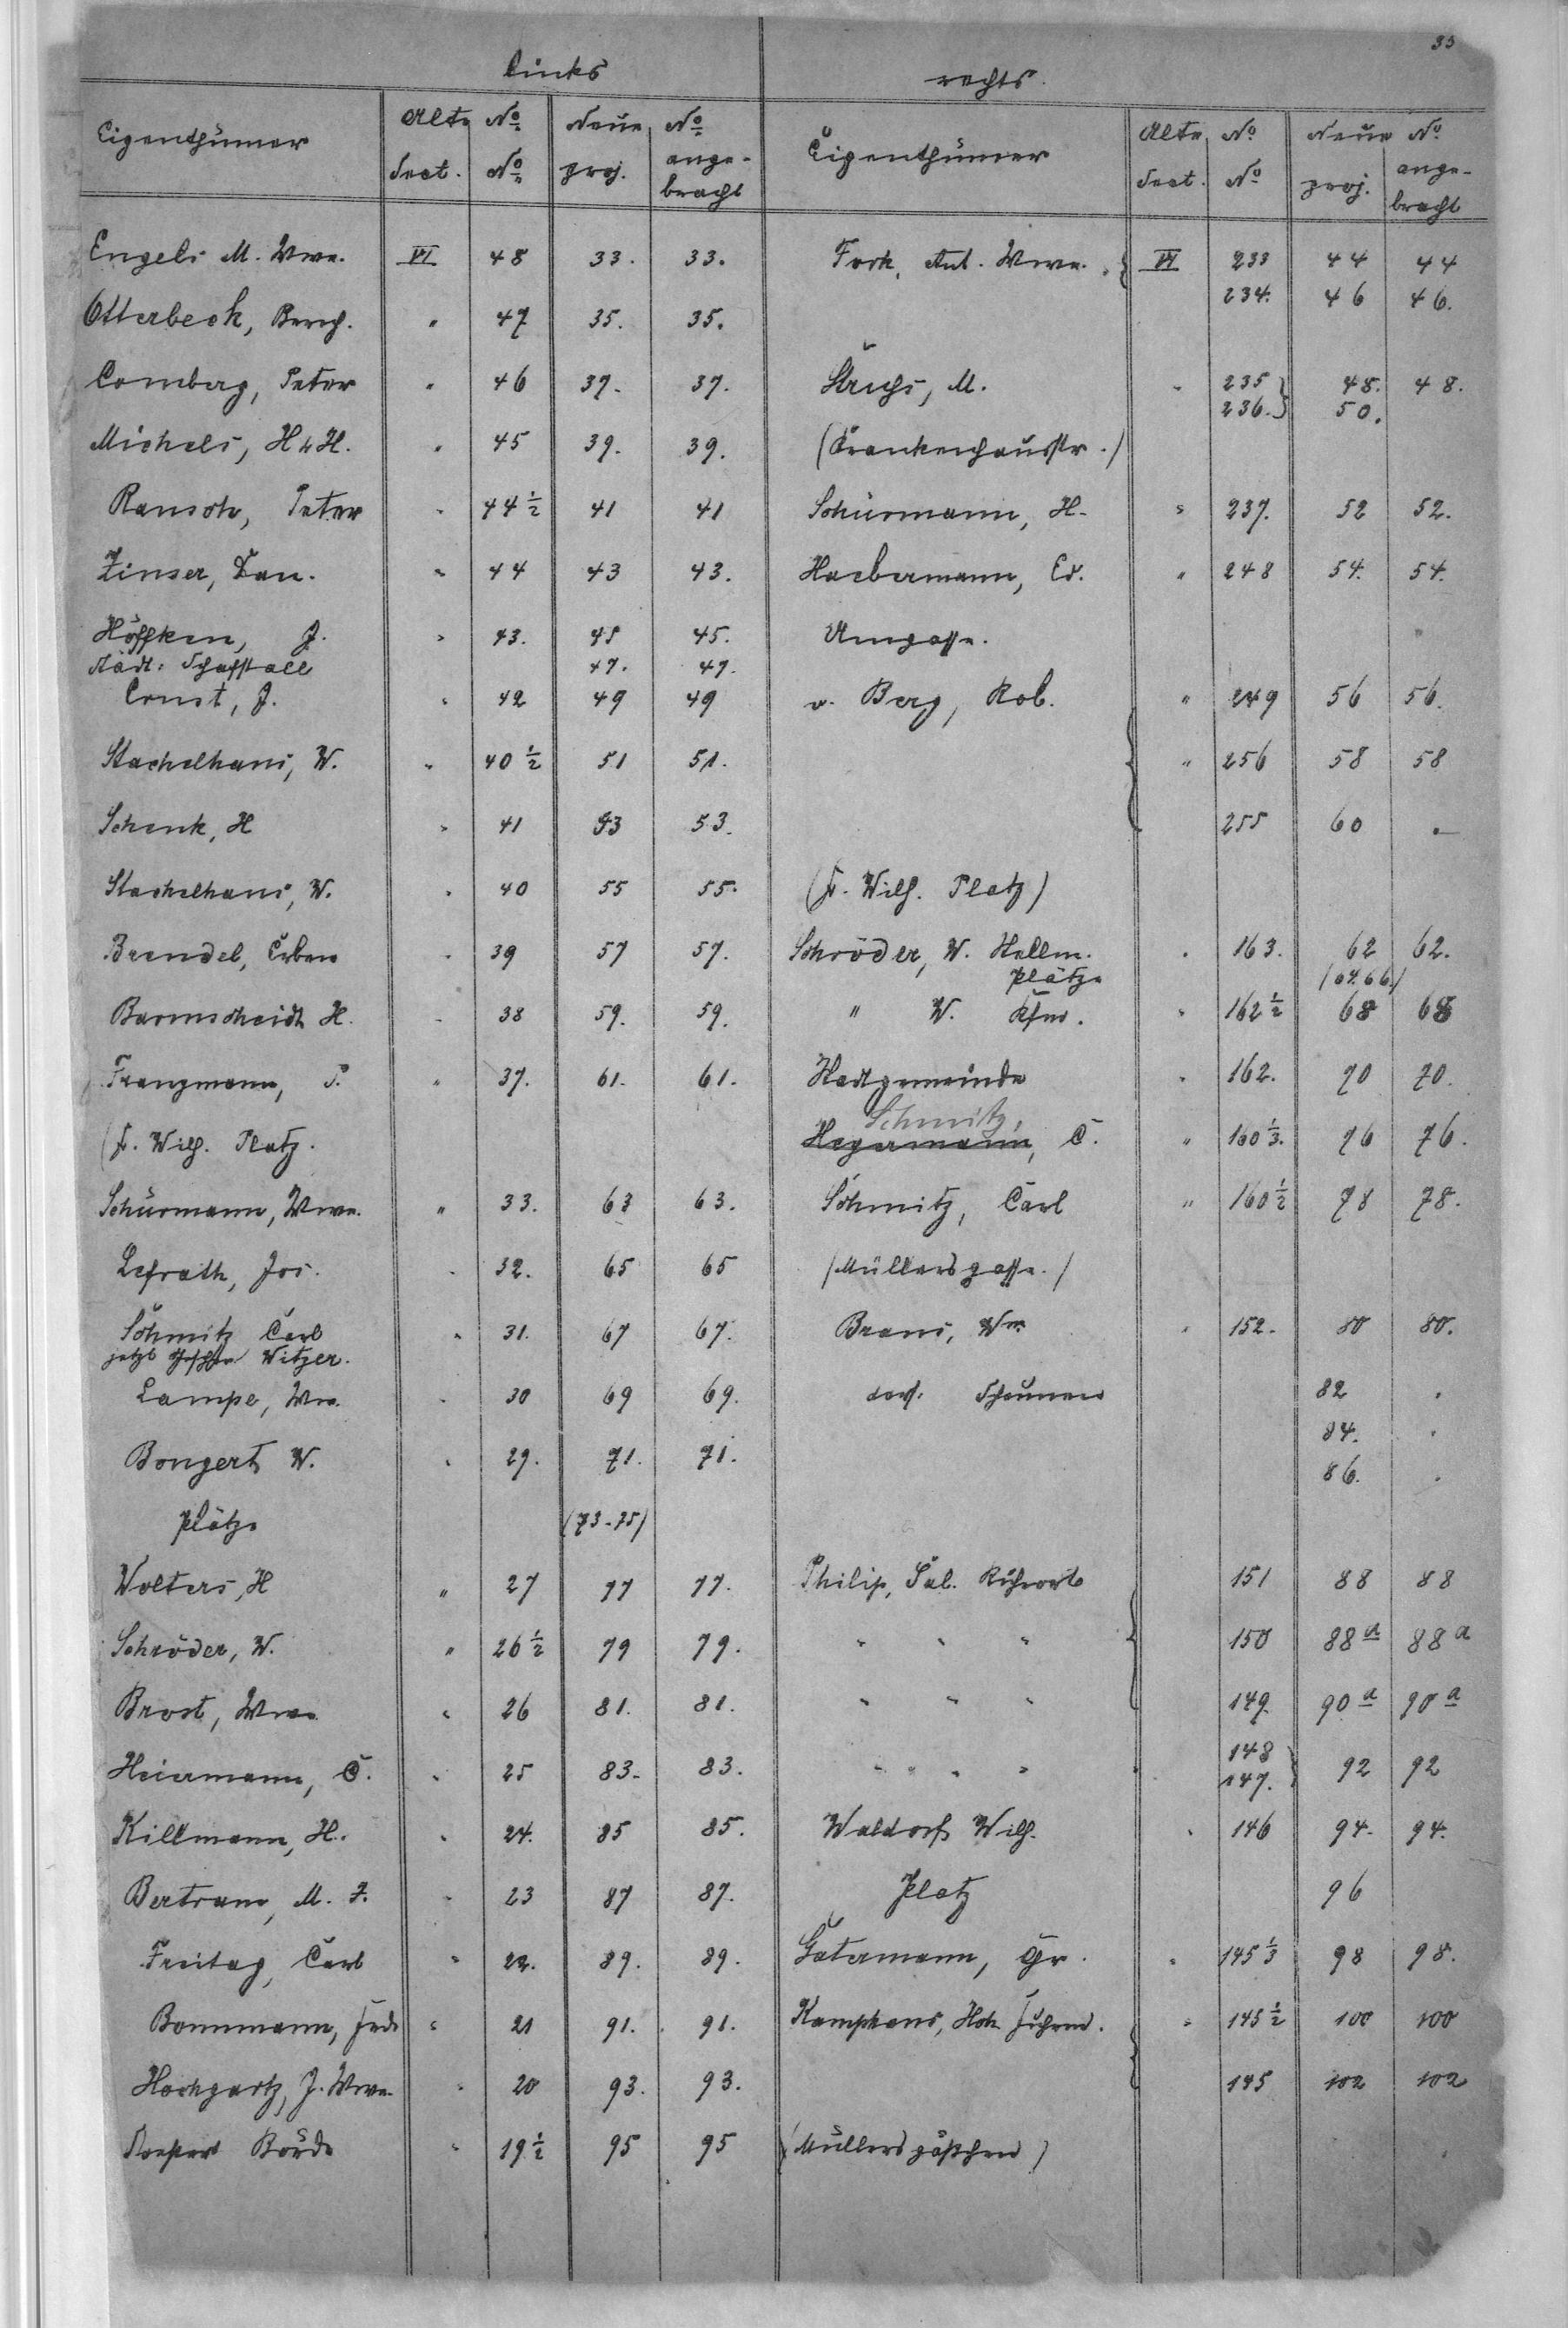 35
links rechts.
Eigenthümer Alte No Neue No Eigenthümer Alte No Neue No
Sect. No proj. ange-bracht Sect. No proj. ange-bracht
Engels M. Wwe. VI 48 33. 33. Fork, Ant. Wwe. VI 233 44 44
234. 46 46.
Otterbeck, Bernh. " 47 35. 35.
Comberg, Peter " 46 37. 37. M. " 235 48. 48.
236. 50.
Michels, H & H. " 45 39. 39. (Krankenhausstr.)
Peter " 44 1/2 41 41 Schürmann, H. " 237. 52 52.
Zinser, Dan. " 44 43 43. Haebermann, Ed. " 248 54. 54.
Höffken, J. " 43. 45 45. Umgasse.
Städt. Schafstall 47. 47.
Ernst, J. " 42 49 49 v. Berg, Rob. " 249 56 56.
Stachelhaus, W. " 40 1/2 51 51. " 256 58 58
Schenk, H " 41 53 53. 255 60 —
Stachelhaus, W. " 40 55 55. (Fr. Wilh. Platz)
Brendel, Erben " 39 57 57. Schröder, W. Hellm. " 163. 62 62.
Plätze (64.66.)
Barmscheidt H. " 38 59. 59. " W. Kfm. " 162 1/2 68 68
Franzmann, P. " 37. 61. 61. Stadtgemeinde " 162. 70 70.
Schmitz,
(Fr. Wilh. Platz. Hegermann, C. " 160 1/3. 76 76.
Schürmann, Wwe. " 33. 63 63. Schmitz, Carl " 160 1/2 78 78.
Lefrath, Jos. " 32. 65 65 (Müllersgasse.)
Schmitz Carl " 31. 67 67. Brans, Wm " 152. 80 80.
jetzt Witzer.
Lampe, Wm. " 30 69 69. ders. Scheunen 82 "
84. "
Bongert W. " 29. 71. 71. 86. "
Plätze (73-75)
Wolters, H " 27 77 77. Philip, Sal. Ruhrort 151 88 88
Schröder, W. " 26 1/2 79 79. " " " 150 88 a 88 a
Brost, Wwe " 26 81. 81. " " " 149. 90 a 90 a
148
Heiermann, C. " 25 83. 83. " " " " 147. 92 92
Killmann, H. " 24. 85 85. Waldorf Wilh. " 146 94. 94.
Bertram, M. F. " 23 87 87. Platz 96
Freitag, Carl " 22. 89. 89. Gatermann, Gr. " 145 1/3 98 98.
Bonnmann, Frdr " 21 91. 91. Kamphans, Hch Fuhrm. " 145 1/2 100 100
Hochgartz, J. Wwe. " 20 93. 93. 145 102 102
" 19 1/2 95 95 (Müllersgäßchen)